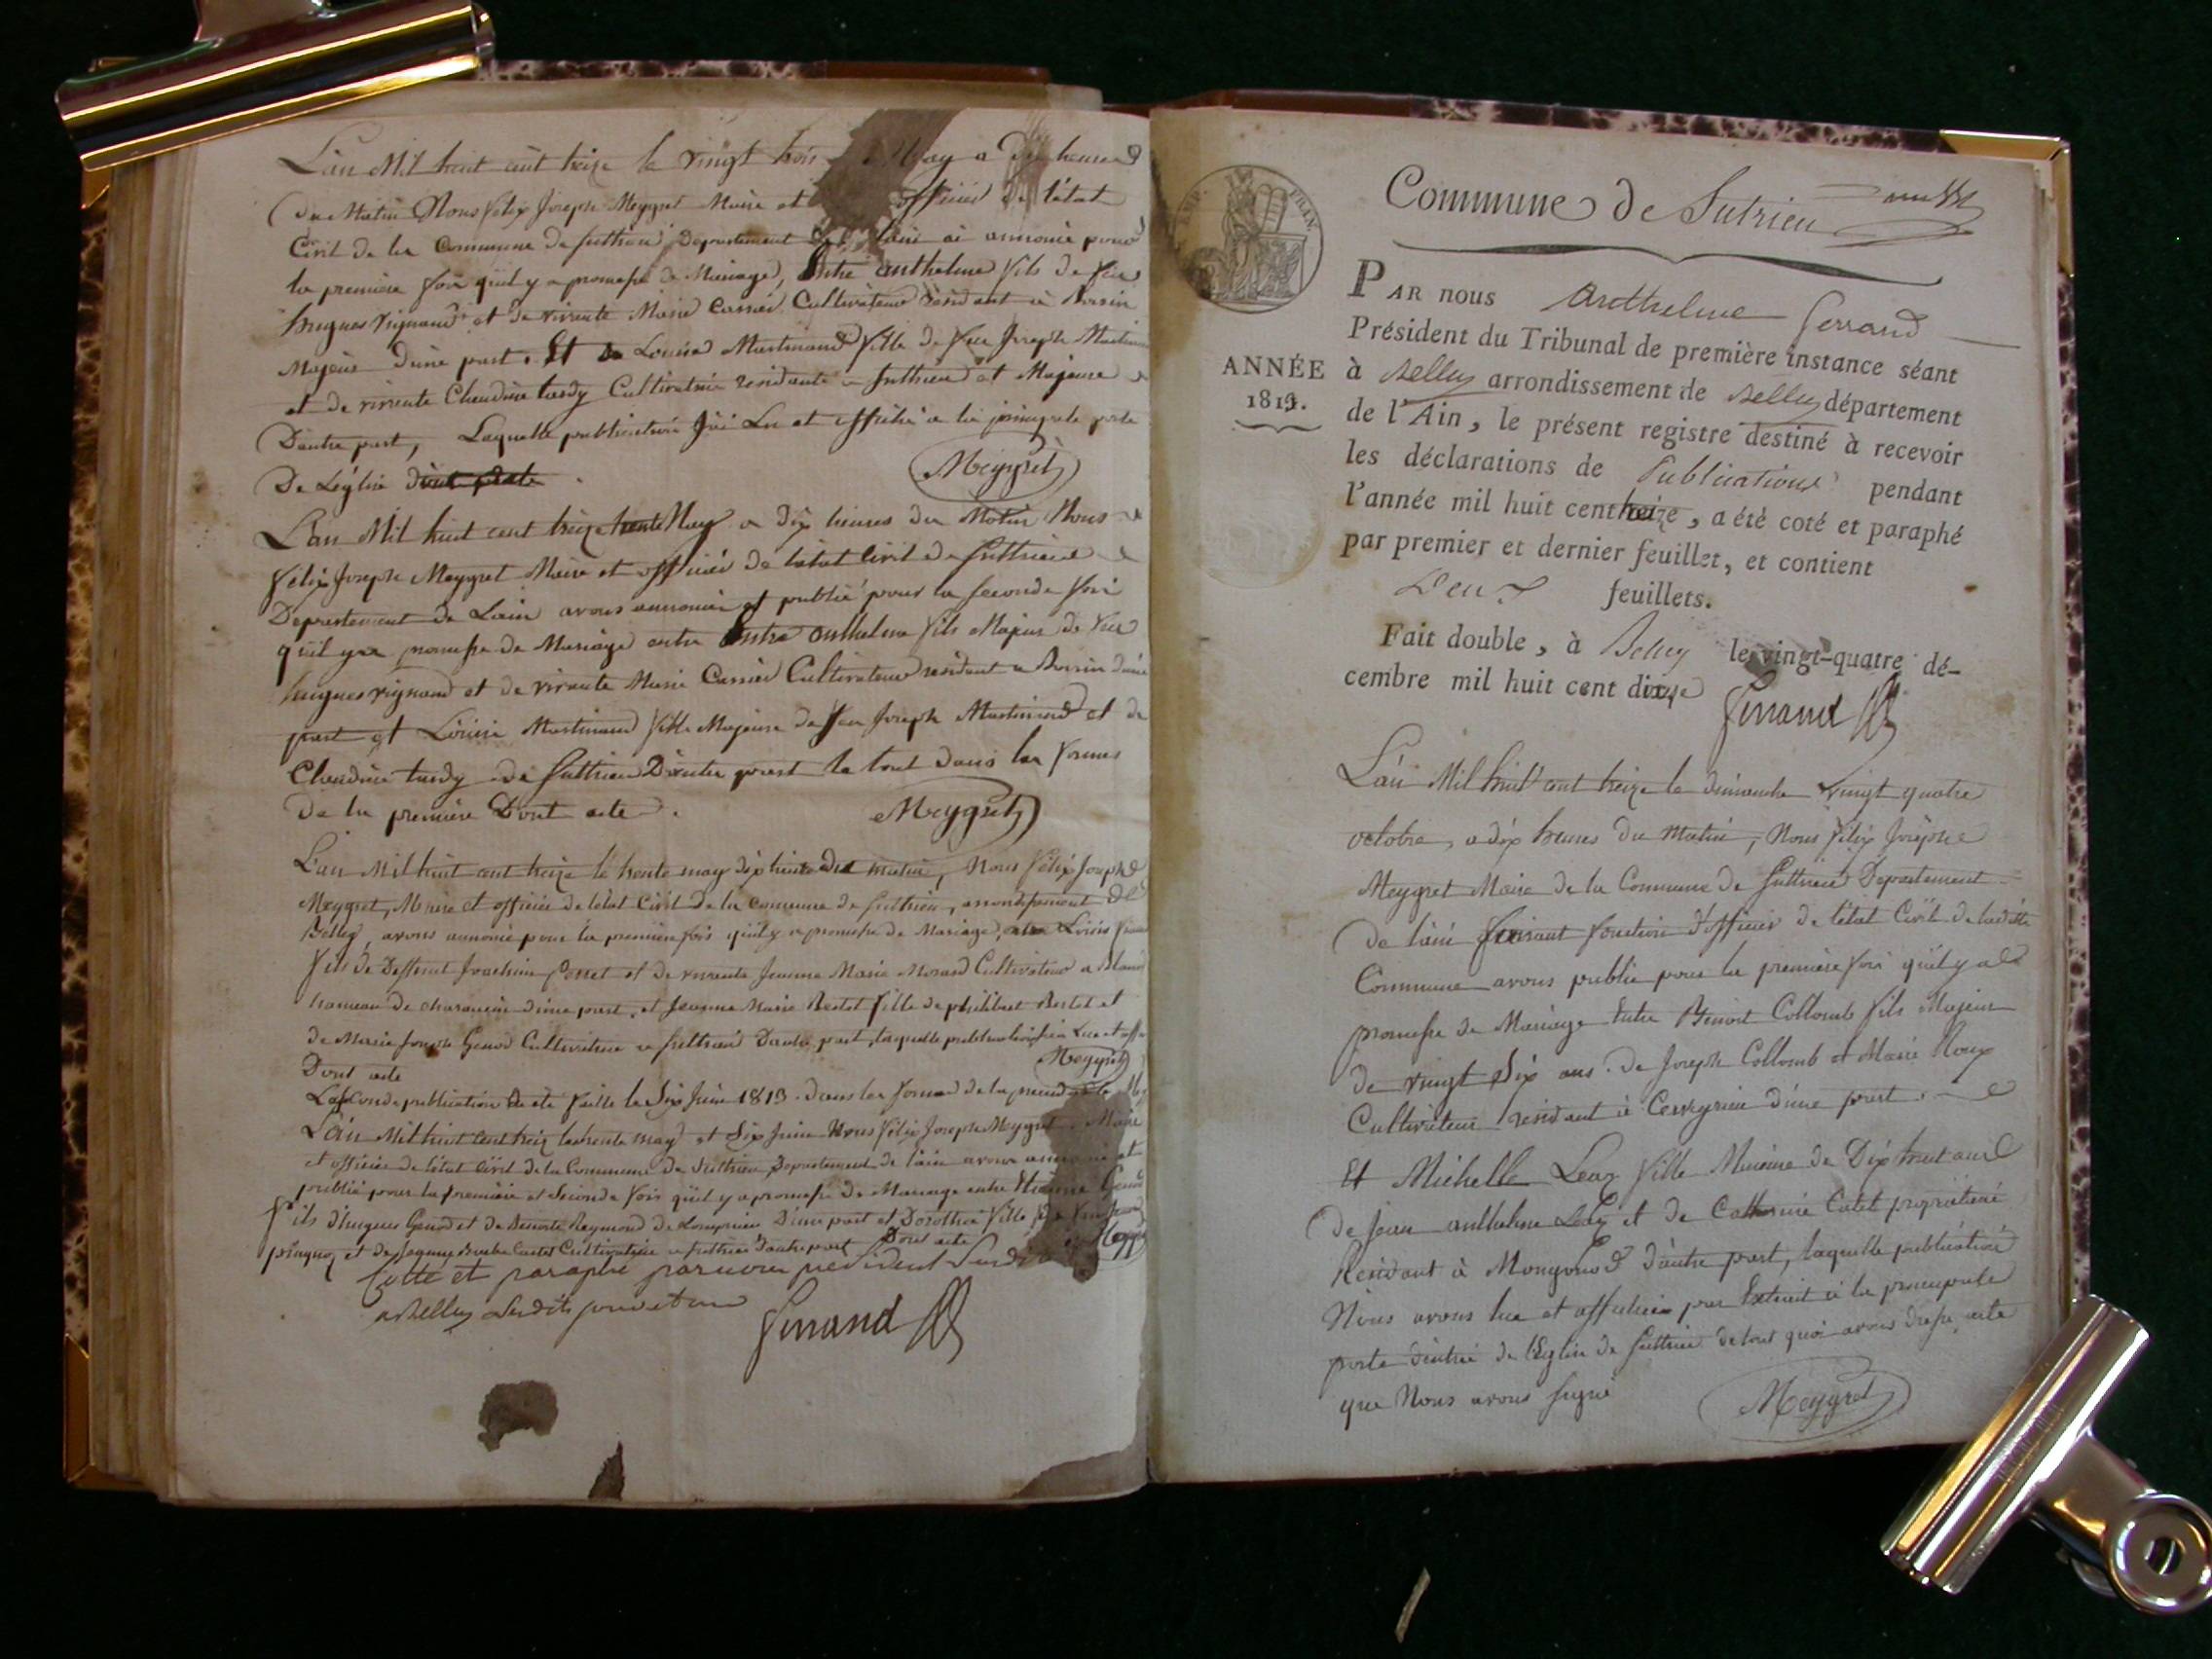 L'an Mil huit cent treize le vingt trois May a dix heures
du Matin Nous félix Joseph Meygret Maire et officier de l'état
Civil de la Commune de Suthrieu Departement lain ai annoncé pour
la première fois qu'il y a promesse de Mariage, Entre anthelme fils de feu
hugues Vignand et de vivante Marie Carrier Cultivateur résidant à
Majeur d'une part. Et Louise Martinand fille de feu Joseph Martin
et de vivante Claudine tardy Cultivatrice residante a Suthrieu et Majeure
D'autre part, Laquelle publication J'ai Lu et affiché a la principale porte
De Léglise
Meygret
L'an Mil huit cent treize trente May a dix heures du Matin Nous
félix Joseph Meygret Maire et officier de l'état Civil de Suthrieu
Departement de Lain avons annoncé et publié pour la seconde fois
qu'il y a promesse de Mariage entre Entre anthelme fils Majeur de feu
hugues Vignand et de vivante Marie Carrier Cultivateur residant a d'une
part et Louise Martinand fille Majeure de feu Joseph Martinand et de
Claudine tardy de Suthrieu D'autre part le tout dans les formes
de la première Dont acte.
Meygret
L'an Mil huit cent treize le trente may dix heures du matin, Nous félix Joseph
Meygret, Maire et officier de l'état Civil de la commune de Suthrieu, arrondissement de
Belley, avons annoncé pour la première fois qu'il y a promesse de Mariage, Louis
fils de Deffunt Joachim et de vivante Jeanne Marie Morand Cultivateur a
hameau de charancin d'une part, et Jeanne Marie fille de philibert et
de Marie Joseph Genod Cultivateur a Suthrieu D'autre part, laquelle publication
Dont acte
Meygret
La seconde publication a été faitte le Six Juin 1813. dans les formes de la
L'an Mil huit cent treize le trente may et Six Juin Nous félix Joseph Meygret Maire
et officier de l'état Civil de la Commune de Suthrieu Departement de lain avons annoncé et
publié pour la première et Seconde fois qu'il y a promesse de Mariage entre Genod
fils d'hugues Genod et de Benoite Reymond de Lompnieu D'une part et Dorothée fille
et de Cultivatrice a Suthrieu D'autre part Dont acte
Cotté et paraphé par nous president Susdit
a Belley
Ferrand
Commune de Sutrieu
IMP. FRAN.
PAR nous Anthelme Ferrand
Président du Tribunal de première instance séant
ANNÉE 1813.
à Belley arrondissement de Belley département
de l'Ain, le présent registre destiné à recevoir
les déclarations de Publications pendant
l'année mil huit cent treize, a été coté et paraphé
par premier et dernier feuillet, et contient
Deux feuillets.
Fait double, à Belley le vingt-quatre dé-
cembre mil huit cent douze
Ferrand
L'an Mil huit cent treize le dimanche vingt quatre
octobre, a dix heures du matin, Nous félix Joseph
Meygret Maire de la Commune de Suthrieu Departement
de l'ain faisant fonction d'officier de l'état Civil de laditte
Commune avons publié pour la première fois qu'il y a
promesse de Mariage Entre Benoit Collomb fils Majeur
de vingt Six ans. de Joseph Collomb et Marie Roux
Cultivateur résidant à Cerveyrieu d'une part.
Et Michelle Leaz fille Mineure de Dix huit ans
de Jean anthelme Leaz et de Catherine Catet proprietaire
Residant à Mongonod d'autre part, laquelle publication
Nous avons lue et affichée par Extrait à la principale
porte d'entrée de l'Eglise de Suthrieu de tout quoi avons dressé acte
que Nous avons signé
Meygret